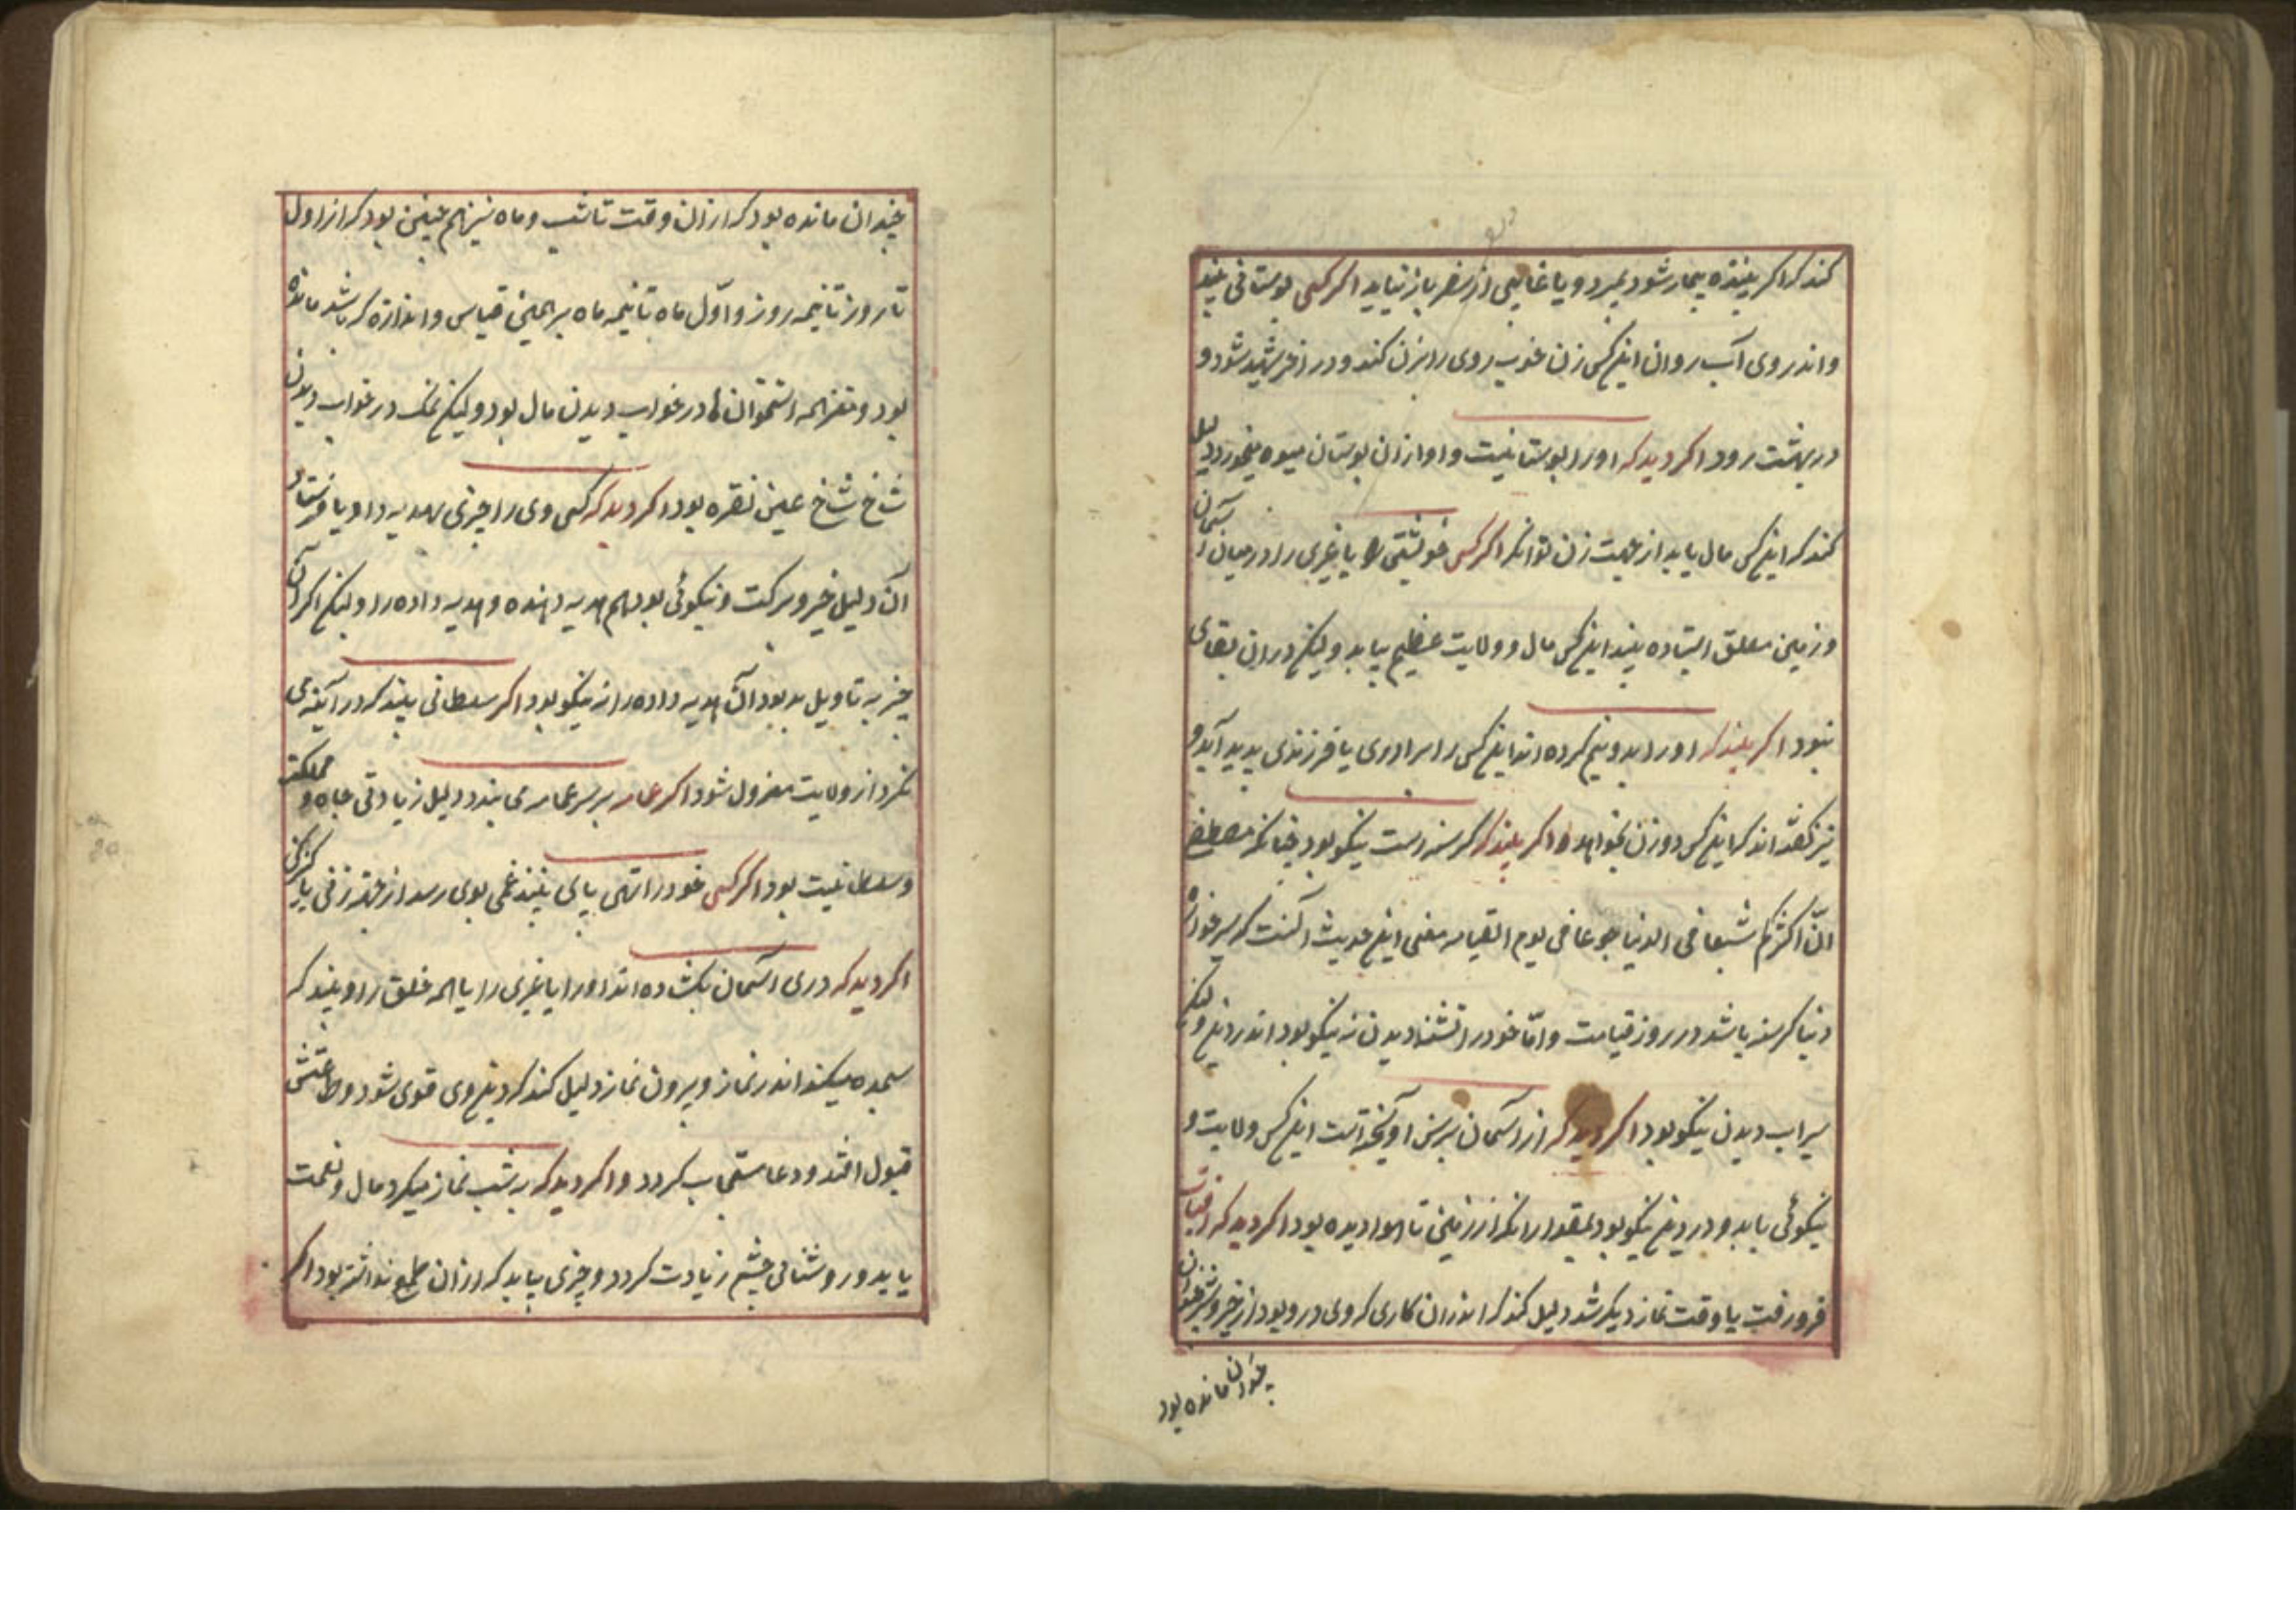 کند که اگر بیننده بیمار شود بمیرد و یا غایبی از سفر باز نیاید اگر کسی بوستانی بیند
و اندر وی آب روان اینکس زن خوب روی را بزن کند و در آخر شهید شود و
در بهشت رود اگر دید که او را بوستانیست و او از ان بوستان میوه میخورد دلیل
کند که اینکس مال یابد از جهت زن توانکر اگر کسی خویشتن را یا غیری را در میان آسمان
و زمین معلق ایستاده بیند اینکس مال و ولایت عظیم بیابد ولیکن در ان بقای
نبود اگر بیند که او را بدو نیم کرده اند اینکس را برادری یا فرزندی پدید آید و
نیز گفته اند که اینکس دو زن بخواهد و اگر بیند که گرسنه است نیکو بود چنانکه مصطفی
انّ اکثرکم شبعا فی الدنیا جوعا فی یوم القیامه معنی این حدیث آنست که سیرخواره
دنیا گرسنه باشد در روز قیامت و امّا خود را تشنه دیدن نه نیکو بود اندر دین ولیکن
سیراب دیدن نیکو بود اگر دید که از آسمان برسن آویخته است اینکس ولایت و
نیکوئی یابد و در دین نیکو بود بمقدار انکه از زمین تا هوا دیده بود اگر دید که آفتاب
فرو رفت یا وقت نماز دیگر شد دلیل کند که اندران کاری که وی درو بود از خیر و شر چندان
چندان مانده بود
چندان مانده بود که از ان وقت تا شب و ماه نیز همچنین بود که از اول
تا روز تا نیمه روز و اوّل ماه تا نیمه ماه برهمین قیاس و اندازه که باشد مانده
بود و مغز همه استخوان ها در خواب دیدن مال بود ولیکن نمک در خواب دیدن
شاخ شاخ عین نقره بود اگر دید که کسی وی را چیزی بهدیه داد یا فرستاد
آن دلیل خیر و برکت و نیکوئی بود هم هدیه دهنده و هدیه داده را ولیکن اگر آن
چیز به تاویل بد بود آن هدیه داده را نه نیکو بود اگر سلطانی بیند که در آینه می
نگرد از ولایت معزول شود اگر عمامه بر سر عمامه می بندد دلیل زیادتی جاه و مملکت
و سلطانیت بود اگر کسی خود را تهی پای بیند غمی بوی رسد از جهة زنی یا کنیزکی
اگر دید که دری آسمان بگشاده اند او را یا غیری را یا همه خلق را و بیند که
سجده میکند اندر نماز و بیرون نماز دلیل کند که دین وی قوی شود و طاعتش
قبول افتد و دعا مستجاب گردد و اگر دید که به شب نماز میکرد مال و نعمت
یابد و روشنائی چشم زیادت گردد و چیزی بیابد که از ان طمع نداشته بود اگر